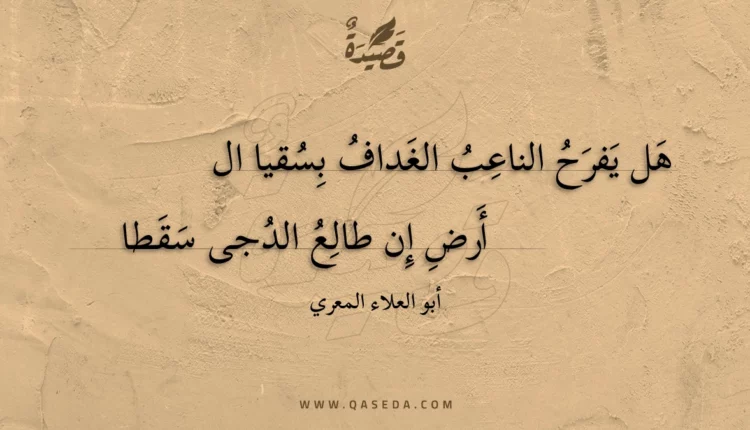 قَصِيدَةٌ
هَل يَفرَحُ الناعِبُ الغَدافُ بِسُقيا ال
أَرضِ إِن طالِعُ الدُجى سَقَطا
أبو العلاء المعري
WWW.QASEDA.COM